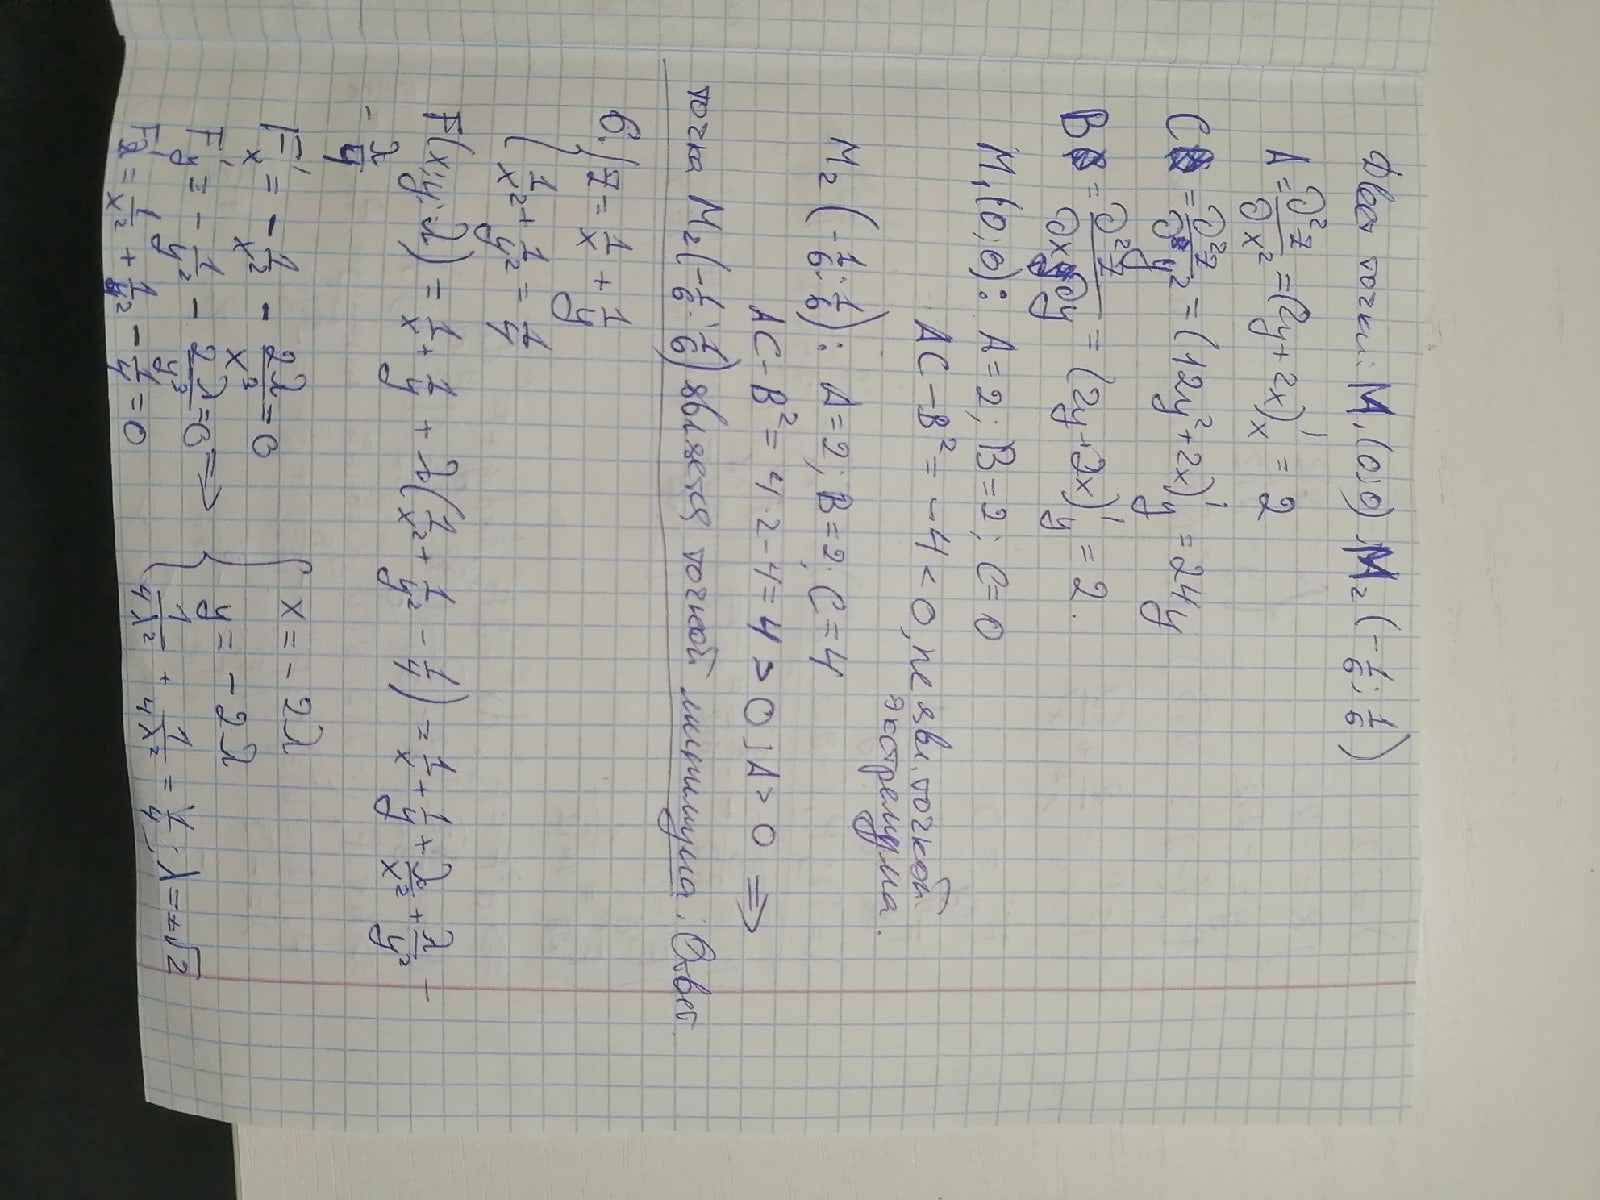 Две точки: M₁(0;0) M₂(-1/6; 1/6)
A = ∂²z/∂x² = (2y+2x)'ₓ = 2
C = ∂²z/∂y² = (12y²+2x)'_y = 24y
B = ∂²z/∂x∂y = (2y+2x)'_y = 2.
M₁(0;0): A=2; B=2; C=0
AC-B² = -4 < 0, не явл. точкой
экстремума.
M₂(-1/6; 1/6): A=2; B=2; C=4
AC-B² = 4·2-4=4 > 0; A > 0 ⇒
точка M₂(-1/6; 1/6) является точкой минимума. Ответ.
6. { z = 1/x + 1/y
1/x² + 1/y² = 1/4
F(x;y;λ) = 1/x + 1/y + λ(1/x² + 1/y² - 1/4) = 1/x + 1/y + λ/x² + λ/y² -
- λ/4
F'ₓ = - 1/x² - 2λ/x³ = 0 { x = -2λ
F'_y = - 1/y² - 2λ/y³ = 0 ⇒ y = -2λ
F'_λ = 1/x² + 1/y² - 1/4 = 0 1/4λ² + 1/4λ² = 1/4; λ = ±√2